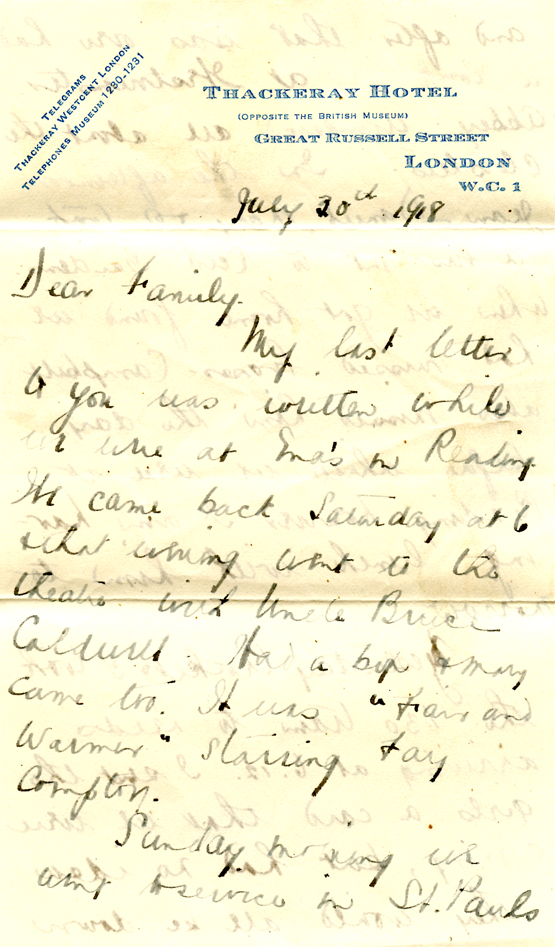 Telegrams
Thackeray Westcent London
Telephones Museum 1230-1231
Thackeray Hotel
(Opposite the British Museum)
Great Russell Street
London
W.C. 1
July 20th 1918
Dear Family.
My last letter
to you was written while
we were at Ena's in Reading.
We came back Saturday at 6
& that evening went to the
theatre with Uncle Bruce
Caldwell. Had a box & Mary
came too. It was "Fair and
Warmer" starring Fay
Compton.
Sunday morning we
went to service in St. Pauls